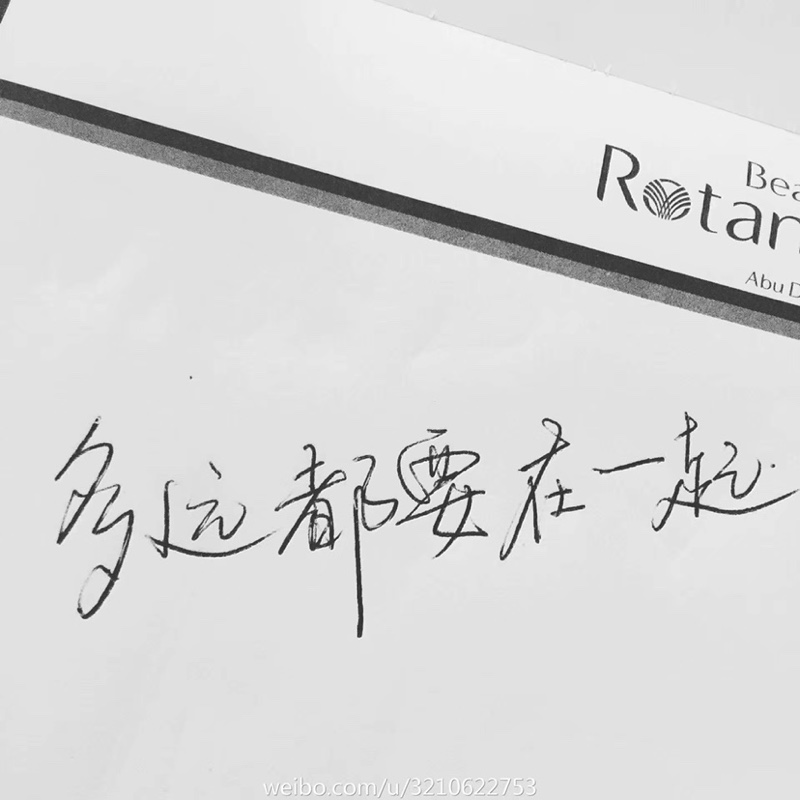 Bea
Rotan
Abu D
多远都要在一起
weibo.com/u/3210622753